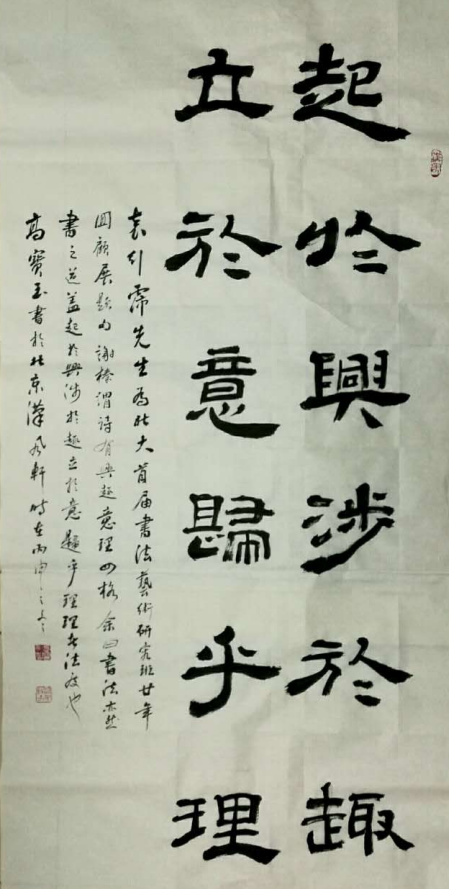 起於興涉於趣
立於意歸乎理
袁行霈先生為北大首届書法藝術研究班廿年
回顧展題句謝榛謂詩有興趣意理四格余曰書法亦然
書之道蓋起於興涉於趣立於意歸乎理理者法度也
高寶玉書於北京漢風軒時在丙申之冬